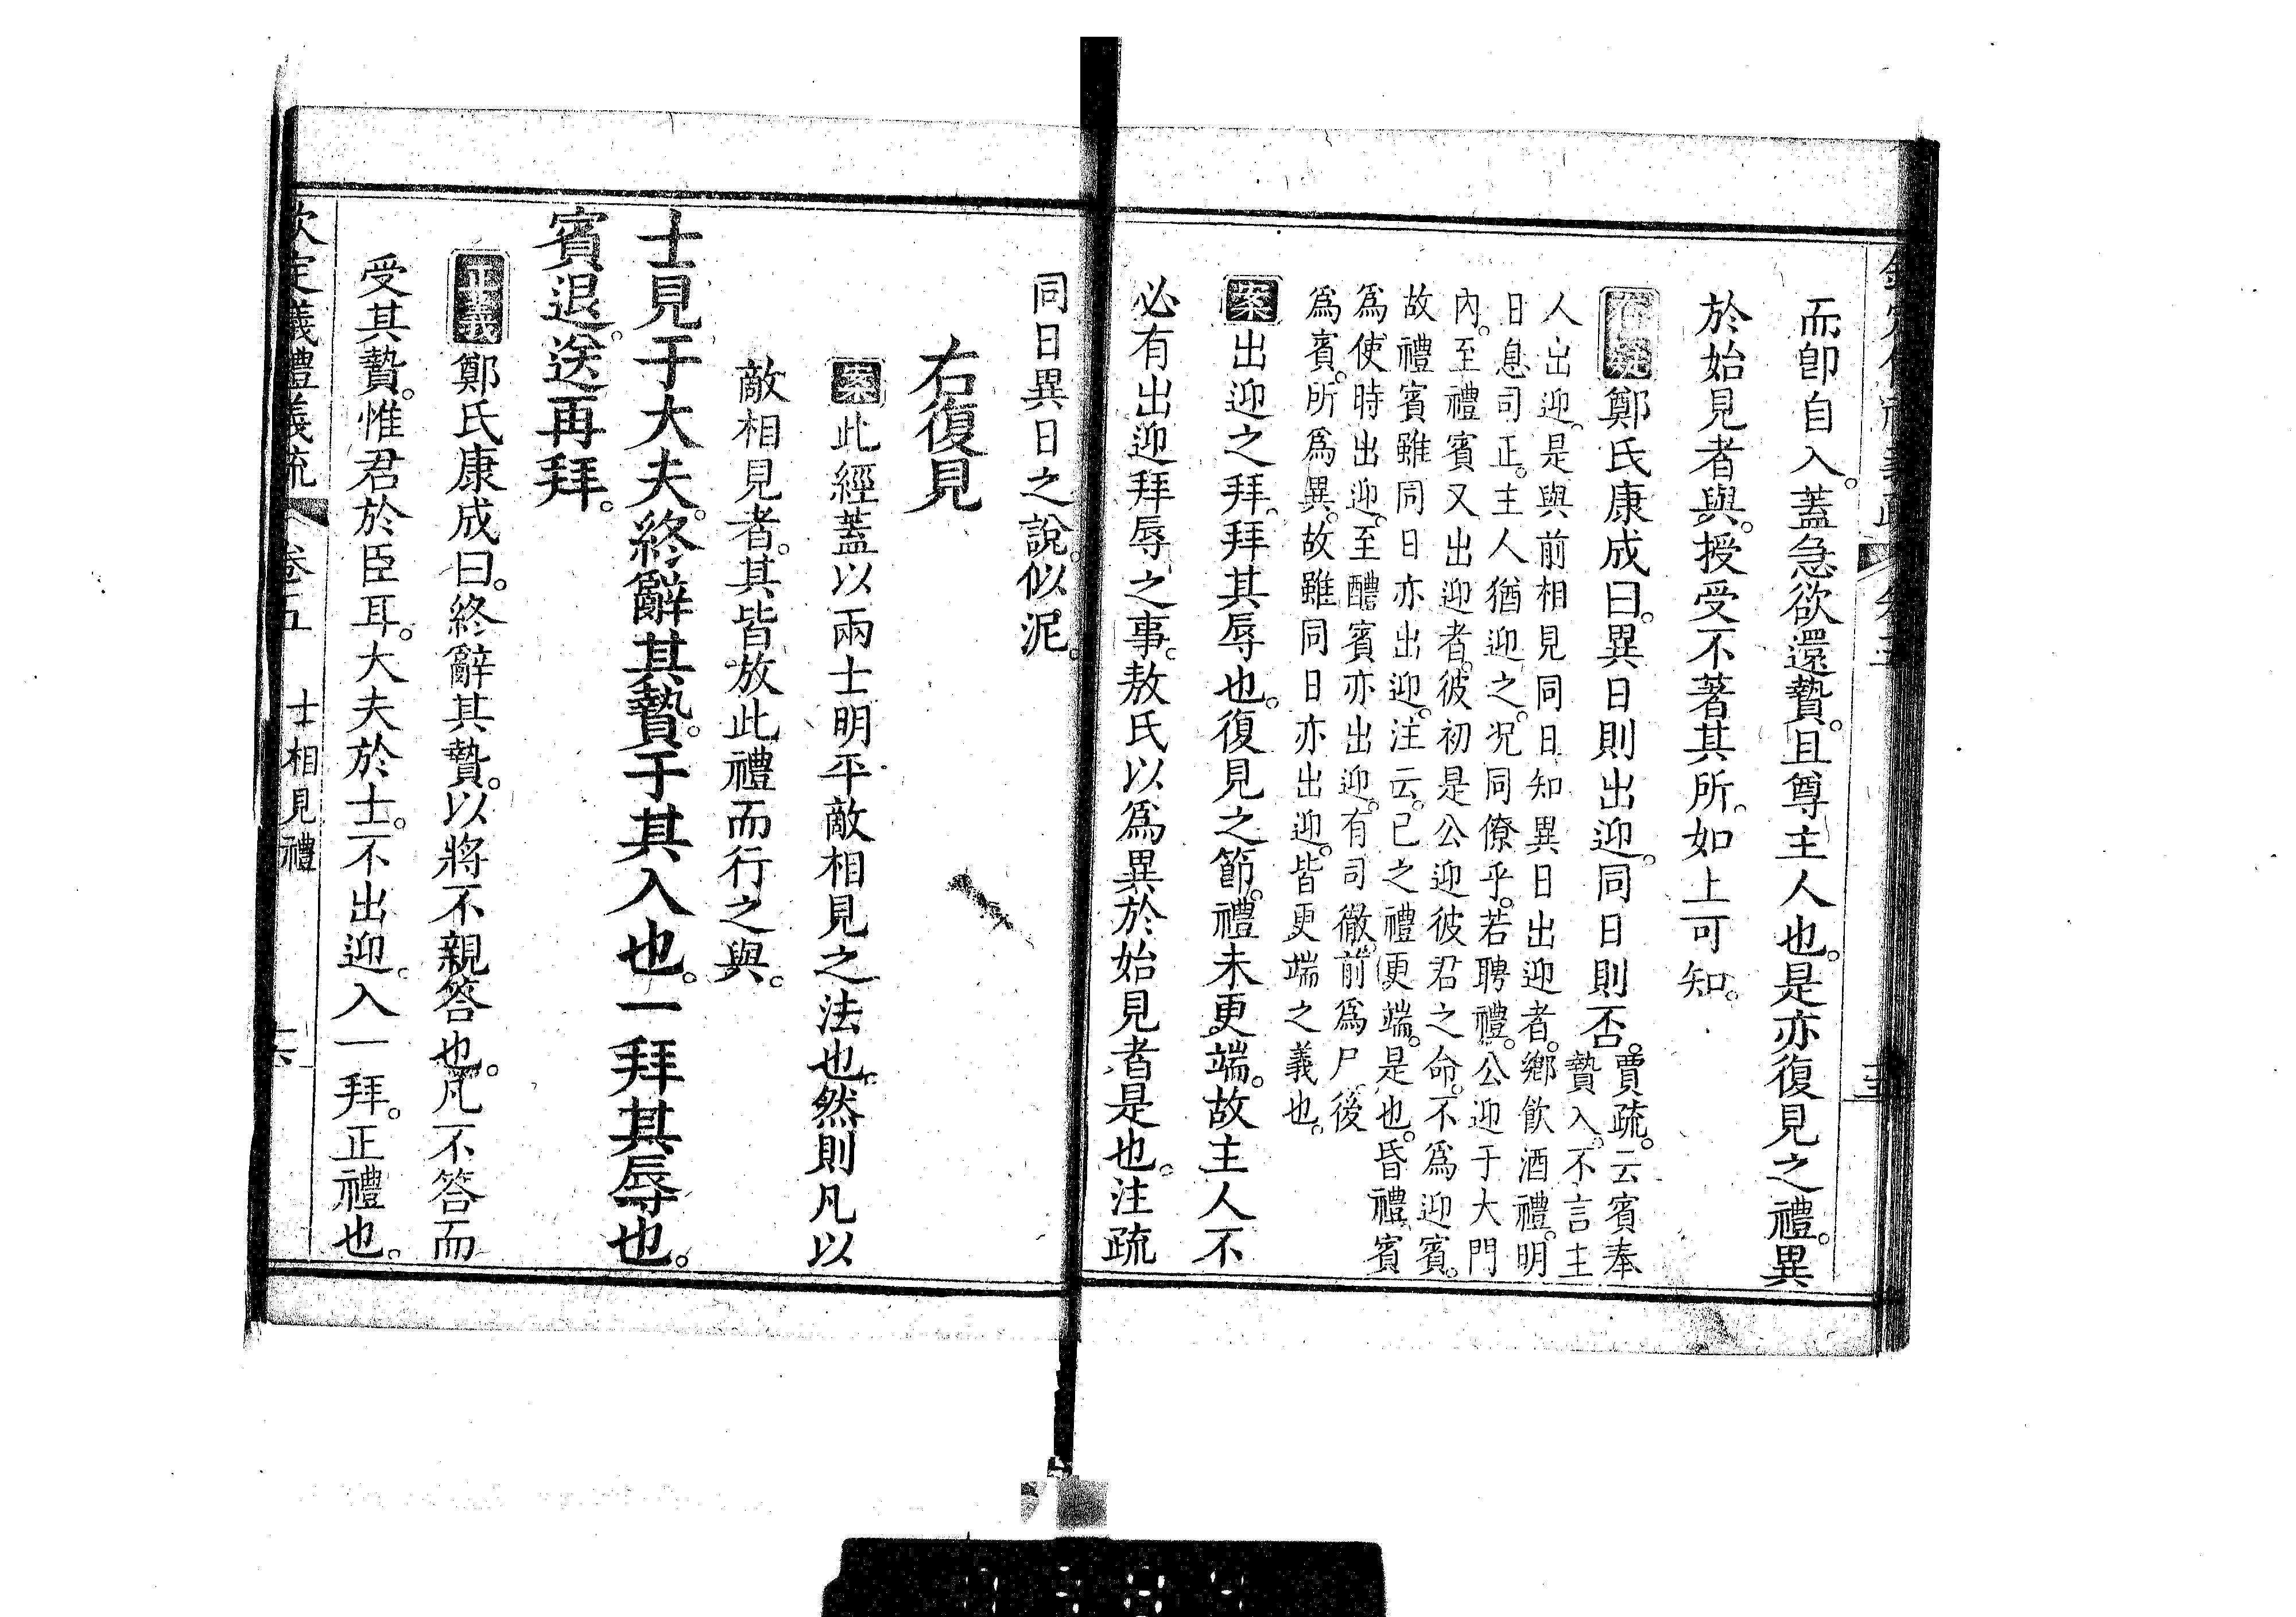 而卽自入。蓋急欲還贄。且尊主人也。是亦復見之禮。異
於始見者與。授受不著其所。如上可知。
存疑鄭氏康成曰。異日則出迎。同日則否。賈疏。云賓奉
贄入。不言主
人出迎。是與前相見同日知異日出迎者。鄉飲酒禮。明
日息司正。主人猶迎之。况同僚乎。若聘禮。公迎于大門
內。至禮賓又出迎者。彼初是公迎彼君之命。不爲迎賓。
故禮賓雖同日亦出迎。注云。已之禮更端。是也。昏禮賓
爲使時出迎。至醴賓亦出迎。有司徹。前爲尸。後
爲賓。所爲異。故雖同日亦出迎。皆更端之義也。
案出迎之拜。拜其辱也。復見之節。禮未更端。故主人不
必有出迎拜辱之事。敖氏以爲異於始見者是也。注疏
同日異日之說。似泥。
右復見
案此經蓋以兩士明平敵相見之法也。然則凡以
敵相見者。其皆放此禮而行之與。
士見于大夫。終辭其贄。于其入也。一拜其辱也。
賓退。送再拜。
正義鄭氏康成曰。終辭其贄。以將不親答也。凡不答而
受其贄。惟君於臣耳。大夫於士。不出迎。入一拜。正禮也。
欽定儀禮義疏 卷五 士相見禮